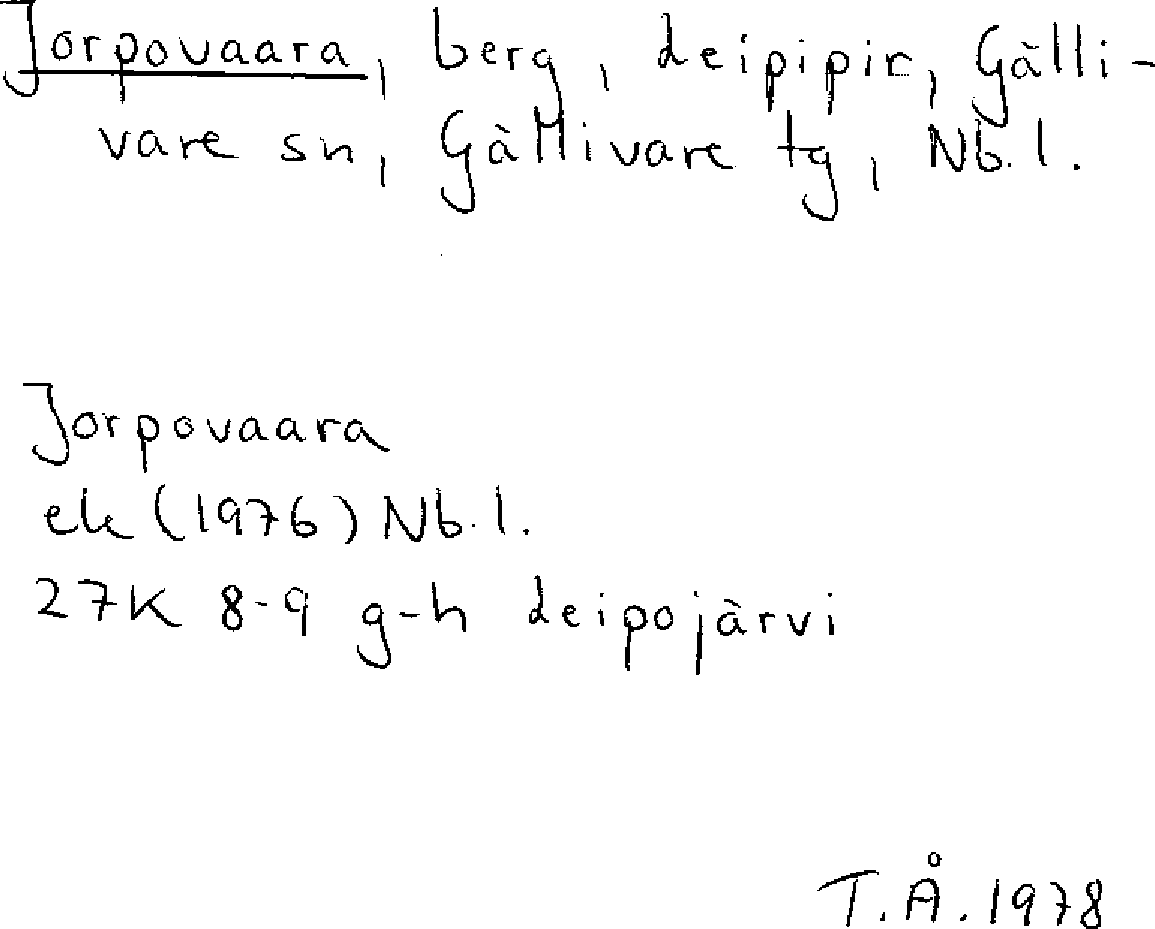 Jorpovaara, berg, Leipipir, Gälli-
vare sn, Gällivare tg, Nb. l.
Jorpovaara
ek (1976) Nb. l.
27K 8-9 g-h Leipojärvi
T.Å. 1978